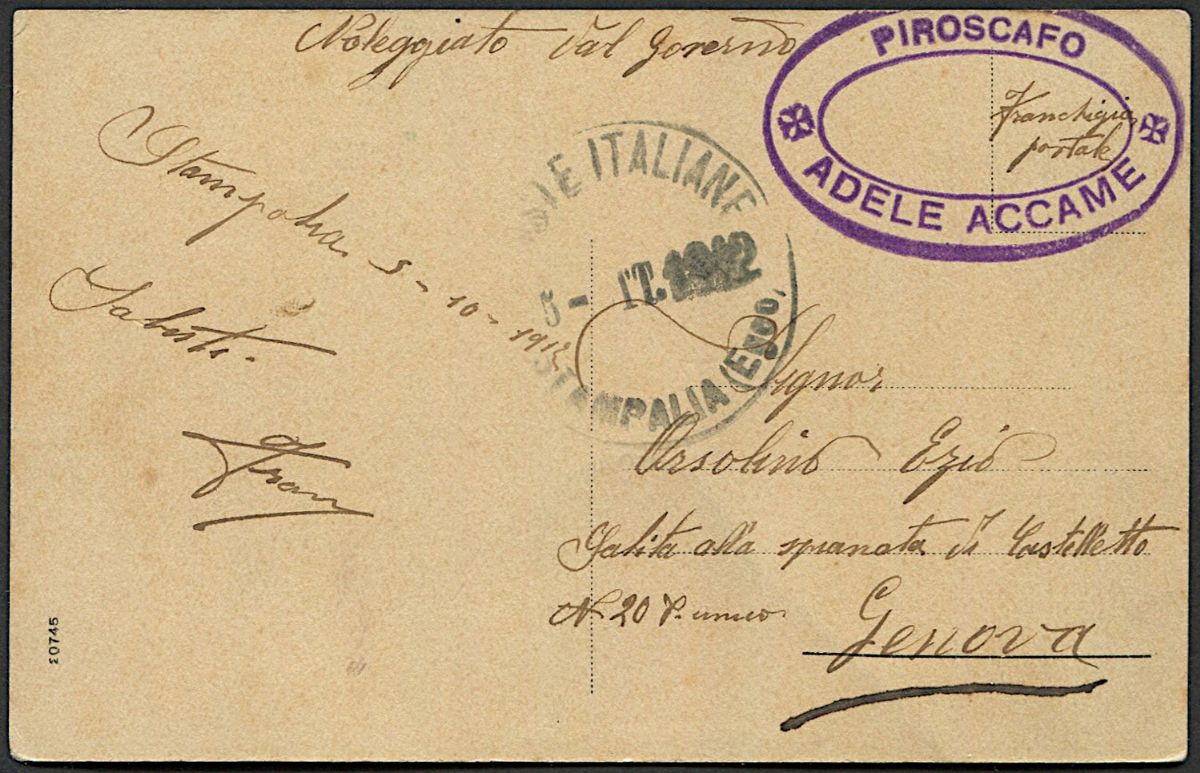 Noleggiato dal Governo
PIROSCAFO
ADELE ACCAME
Franchigia
postale
Stampalia 5-10-1912
Saluti
STE ITALIANE
5 - TT. 1912
STAMPALIA (EGEO)
Signor
Orsolino Ezio
Salita alla spianata di Castelletto
N 20 P. unico
Genova
20745